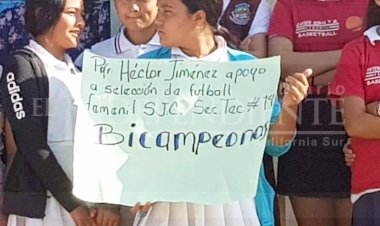 Pqr Héctor Jiménez apoyo
a selección de futball
femenil S.J.C. Sec Tec # 14
Bicampeonas
adidas
BASKETBALL
EL INDEPENDIENTE
California Sur